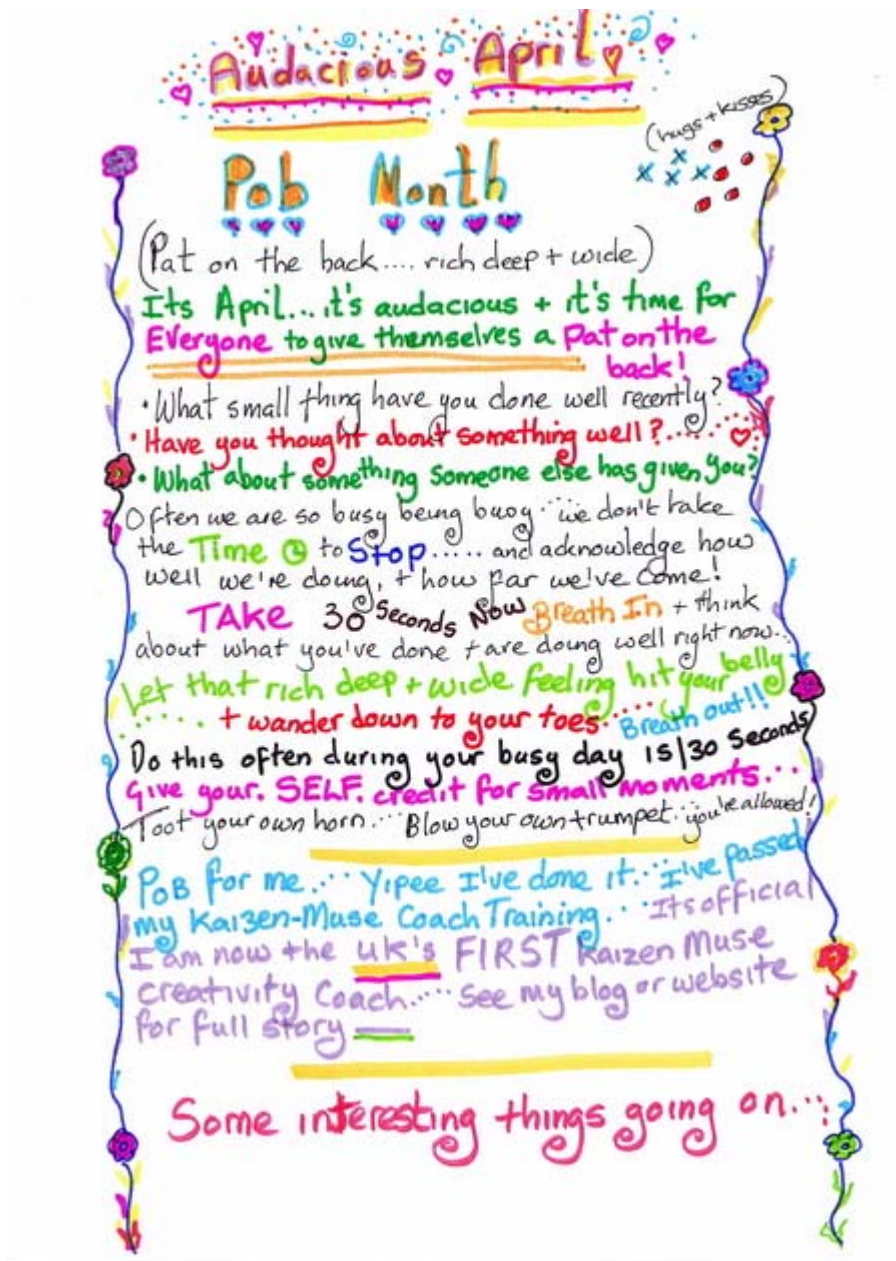 Audacious April
(hugs + kisses)
Pob Month
(Pat on the back.... rich deep + wide)
Its April... it's audacious + it's time for
Everyone to give themselves a Pat on the
back!
• What small thing have you done well recently?
• Have you thought about something well?......
• What about something someone else has given you?
Often we are so busy being busy... we don't take
the Time to Stop..... and acknowledge how
well we're doing, + how far we've come!
TAKE 30 Seconds Now Breath In + think
about what you've done + are doing well right now...
Let that rich deep + wide feeling hit your belly
...... + wander down to your toes..... Breath out!!
Do this often during your busy day 15/30 Seconds
Give your. SELF. credit for small moments....
Toot your own horn.... Blow your own trumpet... you're allowed!
POB for me.... Yipee I've done it.... I've passed
my Kaizen-Muse Coach Training.... Its official
I am now the UK's FIRST Kaizen Muse
Creativity Coach..... See my blog or website
for full story
Some interesting things going on....